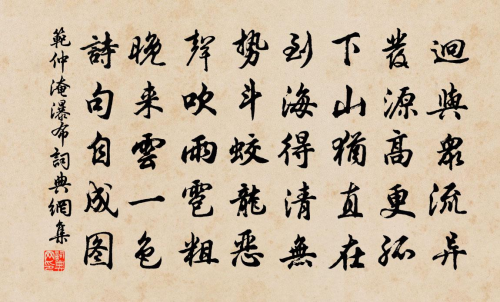 迥與衆流异
發源高更孤
下山猶直在
到海得清無
势斗蛟龍惡
聲吹雨雹粗
晚来雲一色
詩句自成图
範仲淹瀑布詞典網集